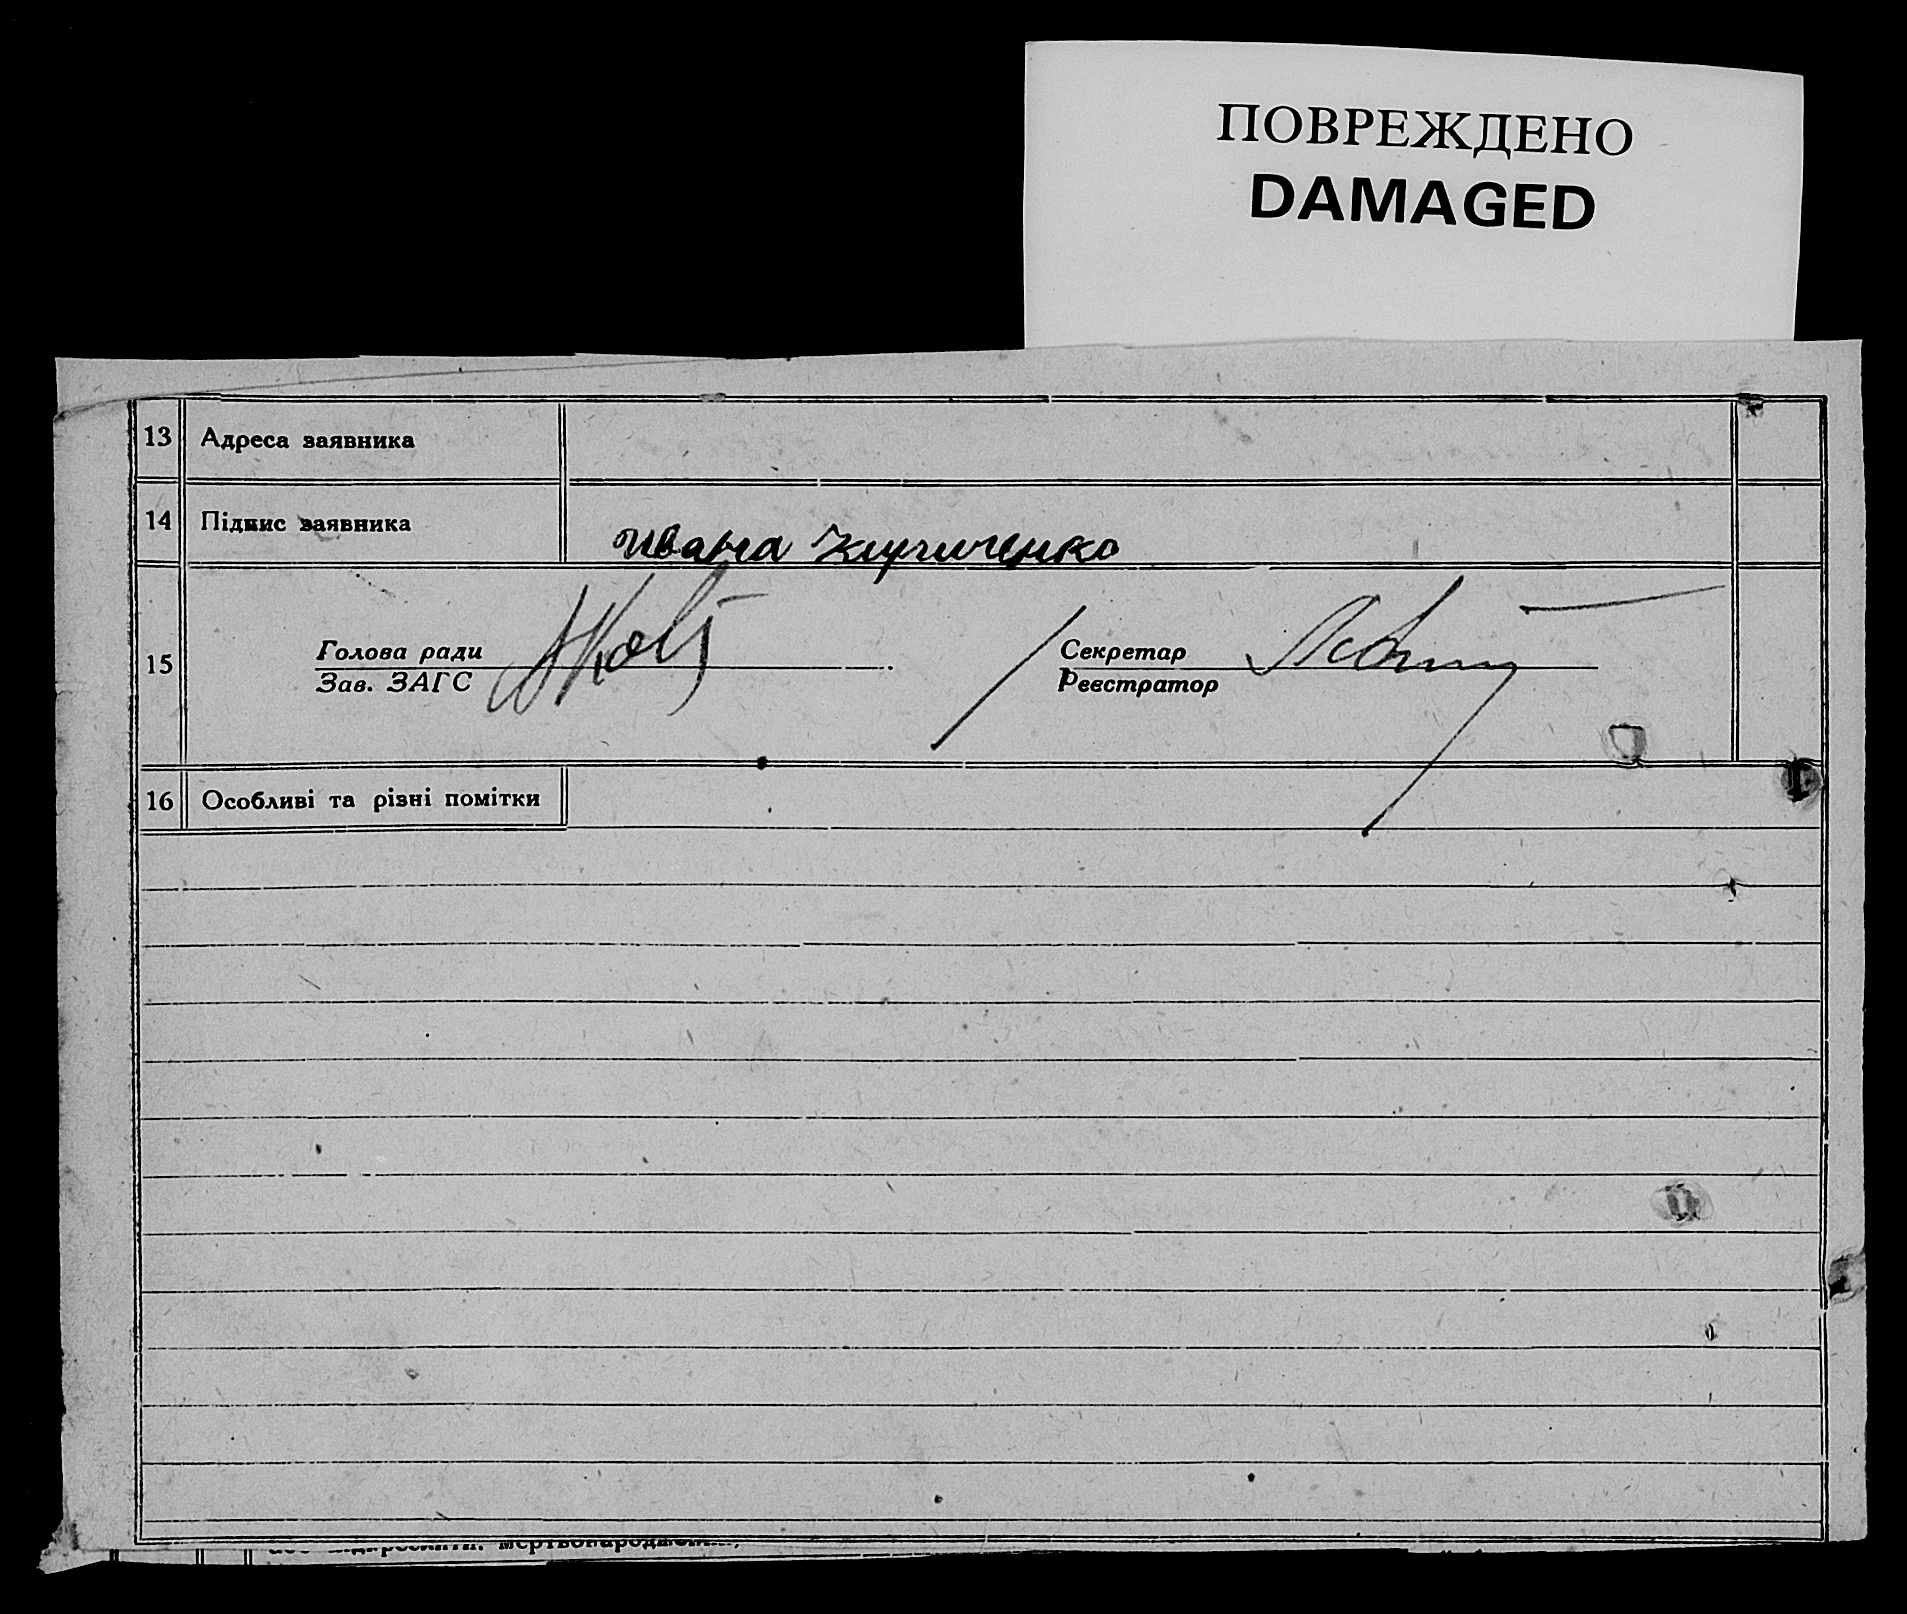 ПОВРЕЖДЕНО
DAMAGED
13 Адреса заявника
14 Підпис заявника Ивана Кириченко
15 Голова ради Секретар
Зав. ЗАГС Реєстратор
16 Особливі та різні помітки
мертвонароджений,